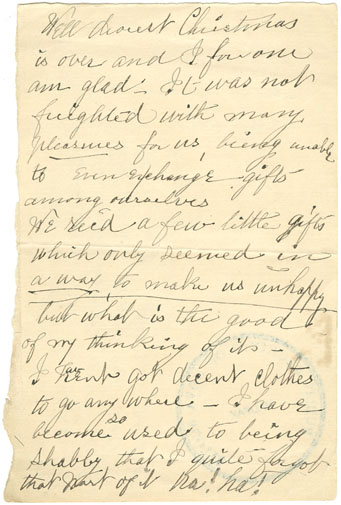 Well dearest Christmas
is over and I for one
am glad - It was not
freighted with many
pleasures for us, being unable
to even exchange gifts
among ourselves
We rec'd a few little gifts
which only seemed in
a way, to make us unhappy
but what is the good
of my thinking of it -
I got decent clothes
to go any where - I have
become so used to being
shabby that I quite forgot
that part of it Ha! Ha!